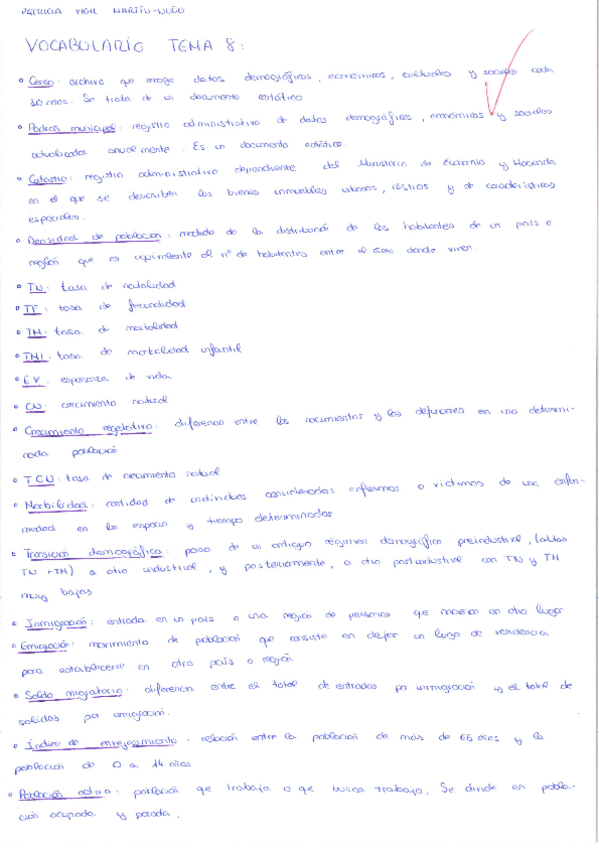 PATRICIA VIGIL MARTÍN-NUÑO
VOCABULARIO TEMA 8:
• Censo: archivo que recoge datos demográficos, económicos, culturales y sociales cada
10 años. Se trata de un documento estático
• Padrón municipal: registro administrativo de datos demográficos, económicos y sociales
actualizados anualmente. Es un documento estático.
• Catastro: registro administrativo dependiente del Ministerio de Economía y Hacienda
en el que se describen los bienes inmuebles urbanos, rústicos y de características
especiales.
• Densidad de población: medida de la distribución de los habitantes de un país o
región que es equivalente al nº de habitantes entre el área donde viven
• TN: tasa de natalidad
• TF: tasa de fecundidad
• TM: tasa de mortalidad
• TMI: tasa de mortalidad infantil
• EV: esperanza de vida
• CN: crecimiento natural
• Crecimiento vegetativo: diferencia entre los nacimientos y las defunciones en una determi-
nada población
• TCN: tasa de crecimiento natural
• Morbilidad: cantidad de individuos considerados enfermos o víctimas de una enfer-
medad en un espacio y tiempo determinados
• Transición demográfica: paso de un antiguo régimen demográfico preindustrial, (altas
TN y TM) a otro industrial, y posteriormente, a otro postindustrial con TN y TM
muy bajas
• Inmigración: entrada en un país o una región de personas que nacieron en otro lugar
• Emigración: movimiento de población que consiste en dejar un lugar de residencia
para establecerse en otro país o región.
• Saldo migratorio: diferencia entre el total de entradas por inmigración y el total de
salidas por emigración.
• Índice de envejecimiento: relación entre la población de más de 65 años y la
población de 0 a 14 años
• Población activa: población que trabaja o que busca trabajo. Se divide en pobla-
ción ocupada y parada.